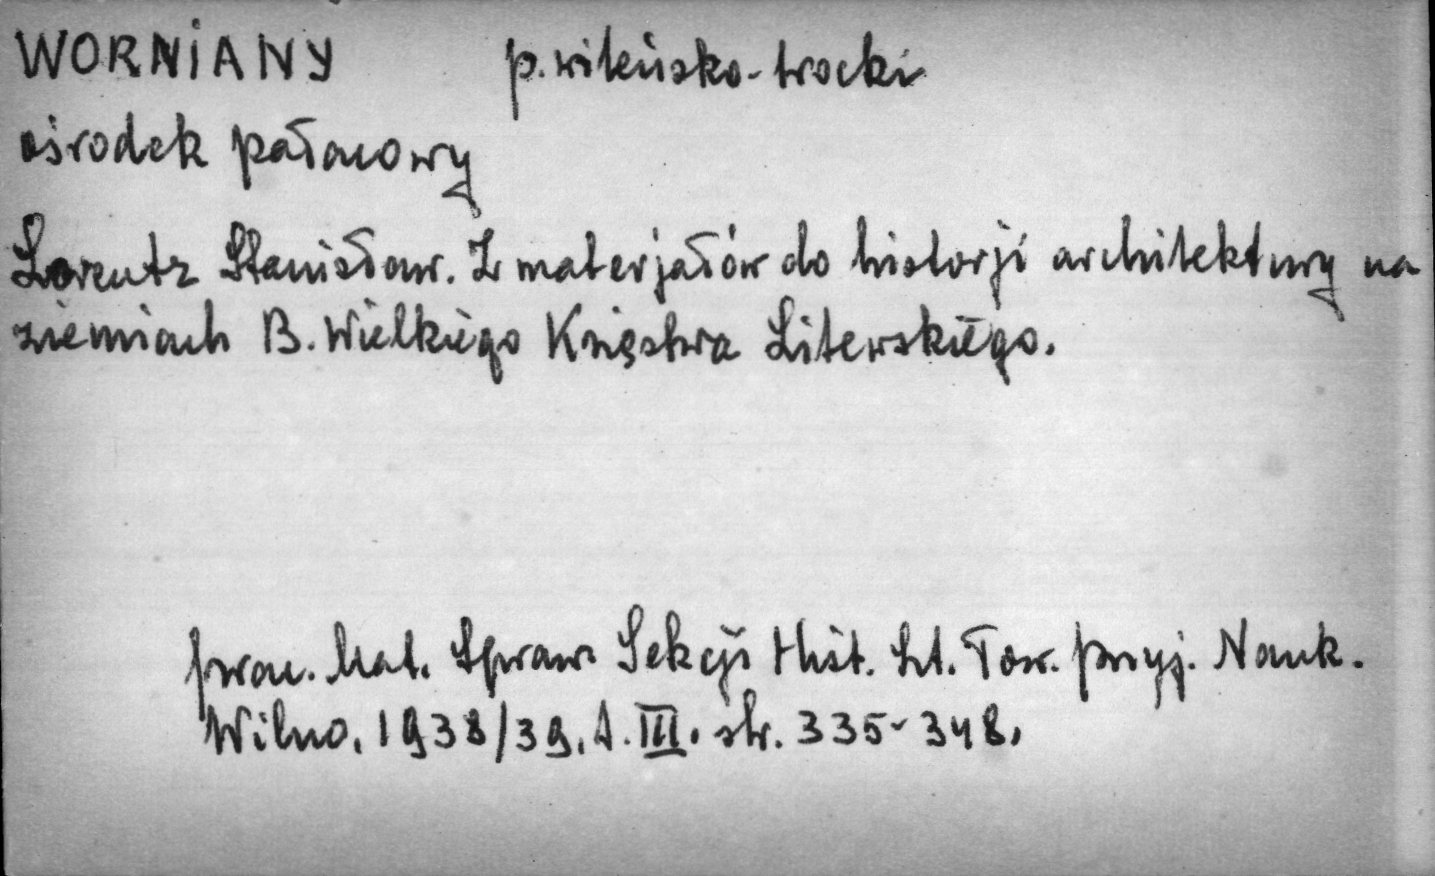 WORNIANY p. wileńsko-trocki
ośrodek pałacowy
Lorentz Stanisław. Z materjałów do historji architektury na
ziemiach B. Wielkiego Księstwa Litewskiego.
prac. Mat. Spraw. Sekcji Hist. Szt. Tow. przyj. Nauk.
Wilno, 1938/39, t. III. str. 335-348.